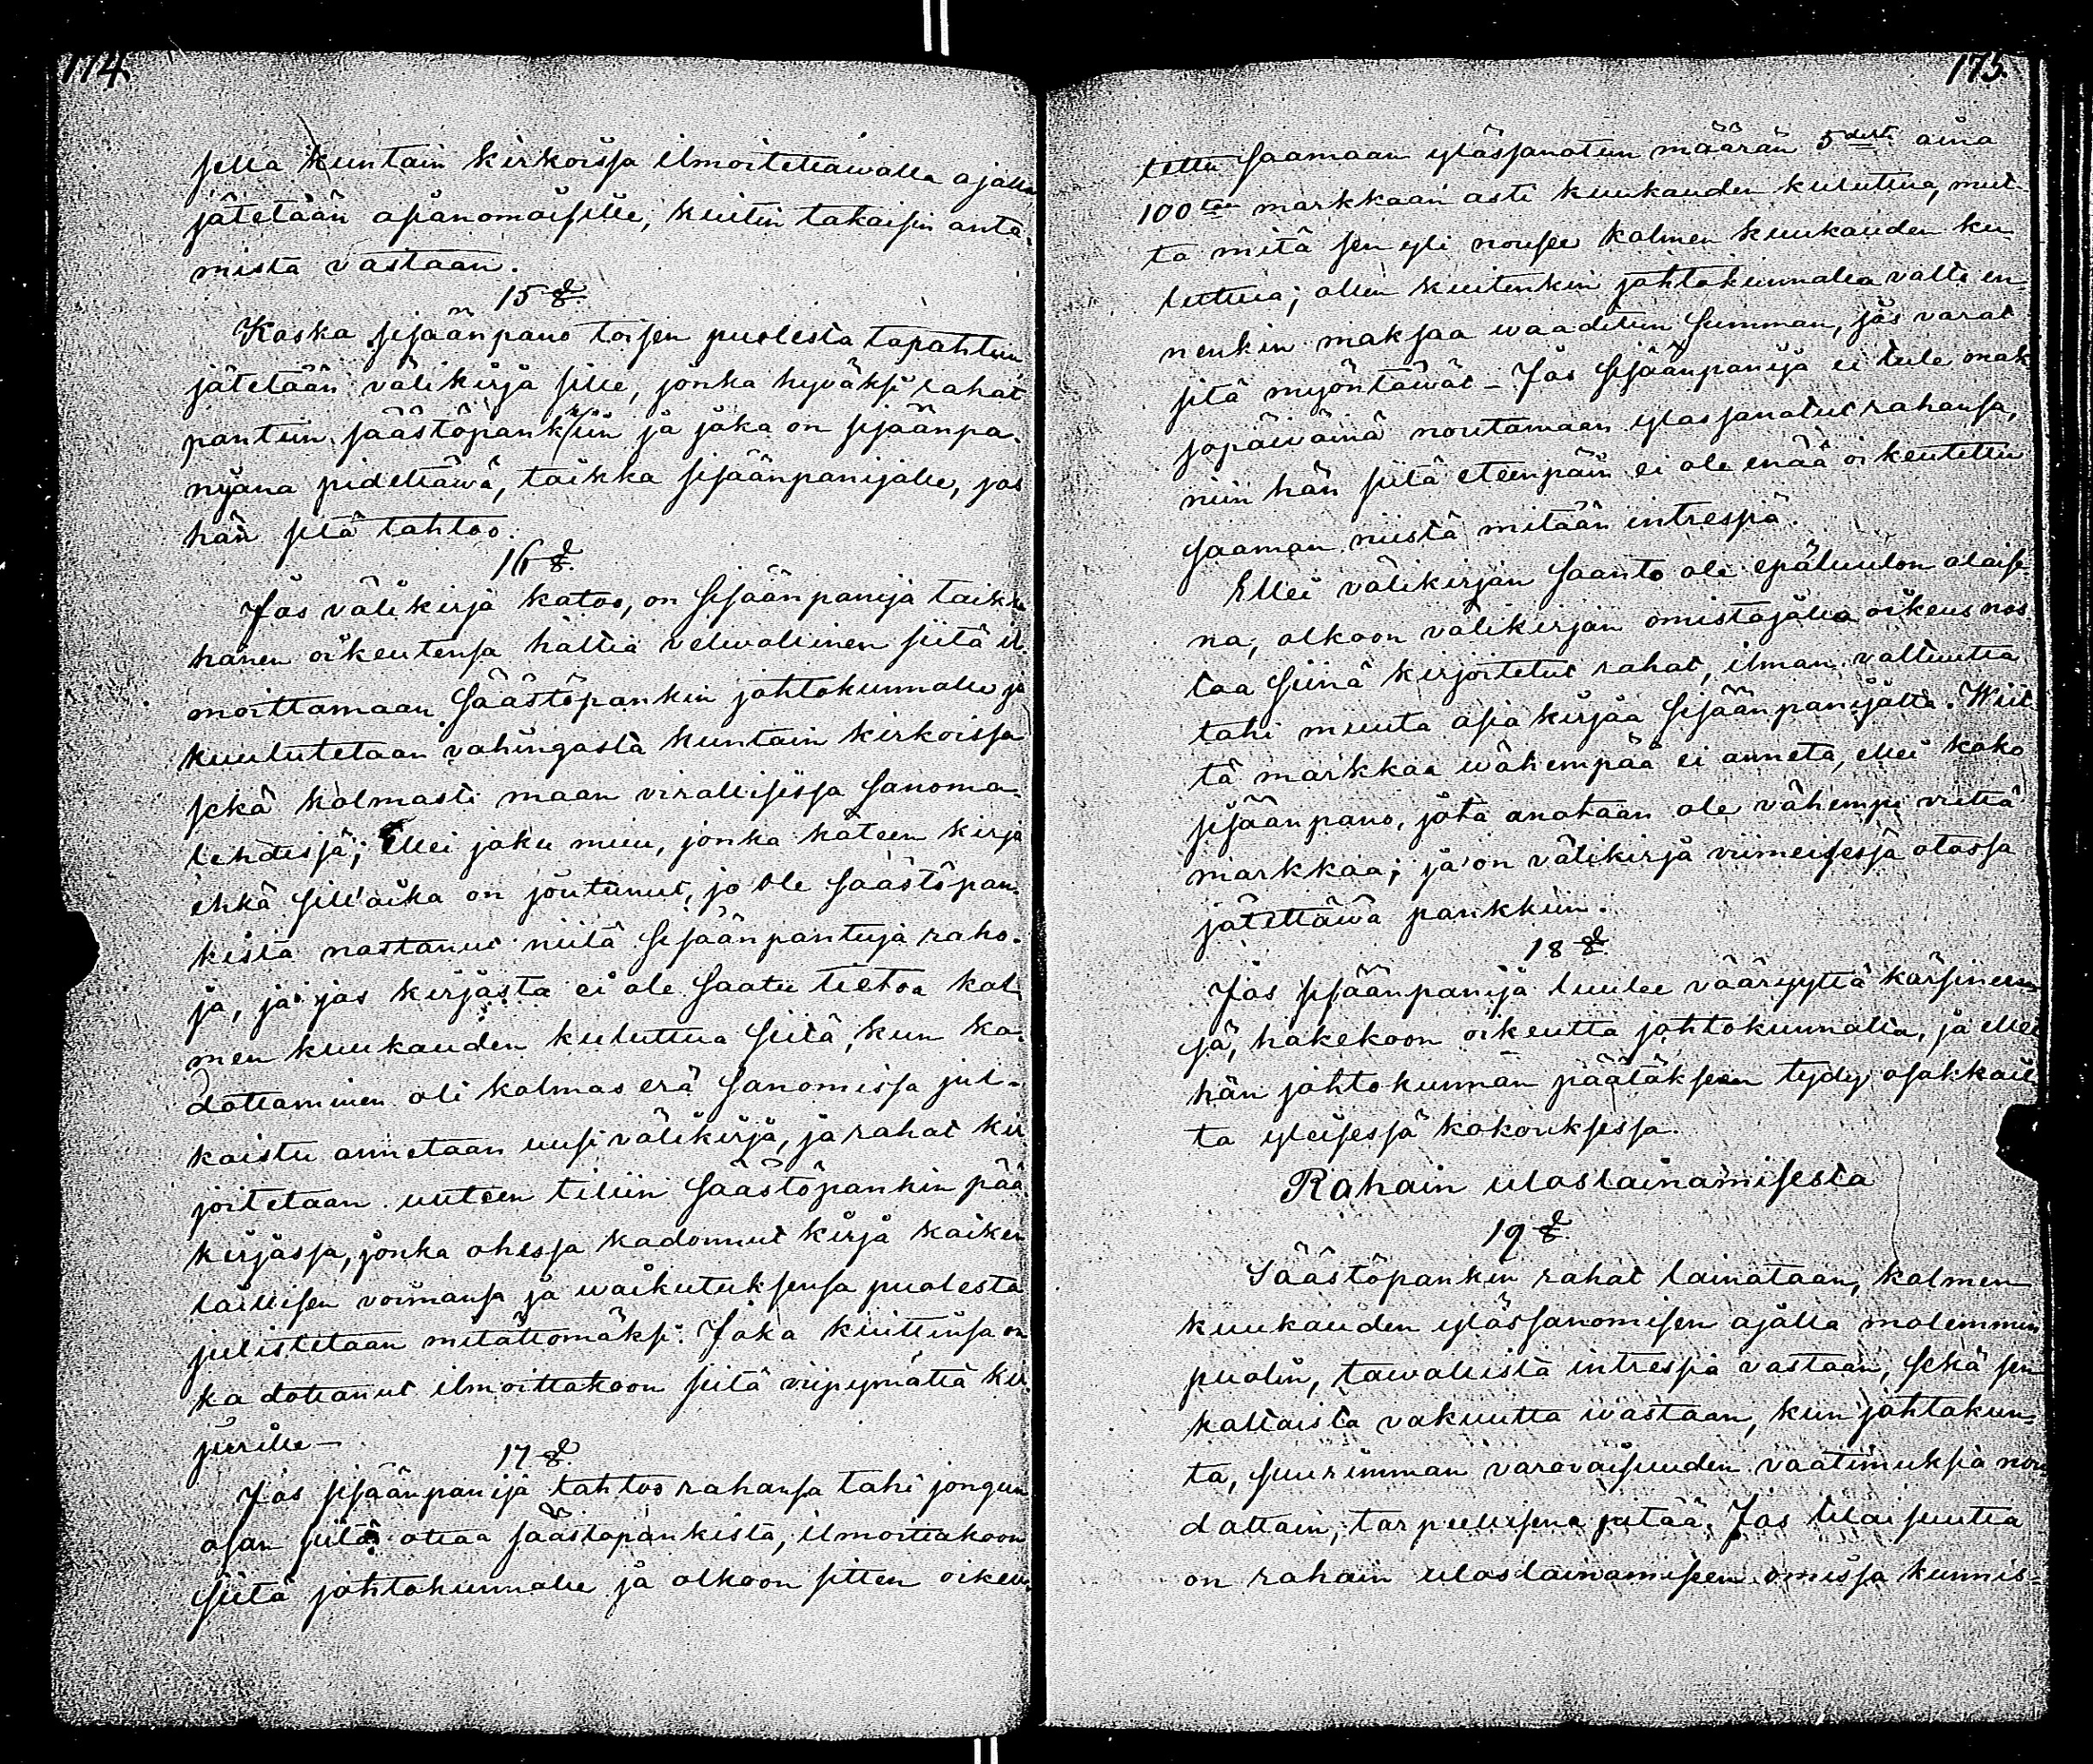 174.
sella kuntain kirkoissa ilmoitettawalla ajalla
jätetään asianomaisille, kuitin takaisin anta-
mista vastaan.
15 §.
Koska sisäänpano toisen puolesta tapahtuu
jätetään välikirja sille, jonka hyväksi rahat
pantiin säästöpankkiin ja joka on sisäänpa-
nijana pidettäwä, taikka sisäänpanijalle, jos
hän sitä tahtoo.
16 §.
Jos välikirja katoo, on sisäänpanija taikka
hänen oikeutensa haltia velwollinen siitä il-
moittamaan Säästöpankin johtokunnalle ja
kuulutetaan vahingosta kuntain kirkoissa
sekä kolmasti maan virallisissa sanoma-
lehdissä; Ellei joku muu, jonka käteen kirja
ehkä sill'aika on joutunut, jo ole säästöpan-
kista nostanut niitä sisäänpantuja raho-
ja, ja jos kirjasta ei ole saatu tietoa kol-
men kuukauden kuluttua siitä, kun ka-
dottaminen oli kolmas erä sanomissa jul-
kaistu annetaan uusi välikirja, ja rahat kir-
joitetaan uuteen tiliin säästöpankin pää-
kirjassa, jonka ohessa kadonnut kirja kaiken
laillisen voimansa ja waikutuksensa puolesta
julistetaan mitättömäksi. Joka kuittinsa on
kadottanut ilmoittakoon siitä viipymättä kir-
jurille –
17 §.
Jos sisäänpanija tahtoo rahansa tahi jongun
osan siitä ottaa säästöpankista, ilmoittakoon
siitä johtokunnalle ja olkoon sitten oikeu-
175.
tettu saamaan ylössanotun määrän 5destä aina
100taan markkaan asti kuukauden kuluttua, mut-
ta mitä sen yli nousee kolmen kuukauden ku-
luttua; ollen kuitenkin johtokunnalla valta en-
nenkin maksaa waaditun summan, jos varat
sitä myöntäwät – Jos sisäänpanija ei tule mak-
sopäiwäinä noutamaan ylössanotut rahansa,
niin hän siitä eteenpäin ei ole enää oikeutettu
saaman niistä mitään intressiä.
Ellei välikirjan saanto ole epäluulon alaise-
na, olkoon välikirjan omistajalla oikeus nos-
taa siinä kirjoitetut rahat, ilman valtuutta
tahi muuta asia kirjaa sisäänpanijalta. Wiit-
tä markkaa wähempää ei anneta, ellei koko
sisäänpano, jota anotaan ole vähempi viittä
markkaa; ja on välikirja viimeisessä otossa
jätettäwä pankkiin.
18 §.
Jos sisäänpanija luulee vääryyttä kärsineen-
sä, hakekoon oikeutta johtokunnalta, ja ellei
hän johtokunnan päätökseen tydy osakkail-
ta yleisessä kokouksessa.
Rahain uloslainaamisesta
19 §.
Säästöpankin rahat lainataan, kolmen
kuukauden ylössanomisen ajalla molemmin
puolin, tawallista intressiä vastaan, sekä sen
kaltaista vakuutta wastaan, kun johtokun-
ta, suurimman varovaisuuden vaatimuksia nou-
dattain, tarpeellisena pitää. Jos tilaisuutta
on rahain uloslainaamiseen omissa kunnis-